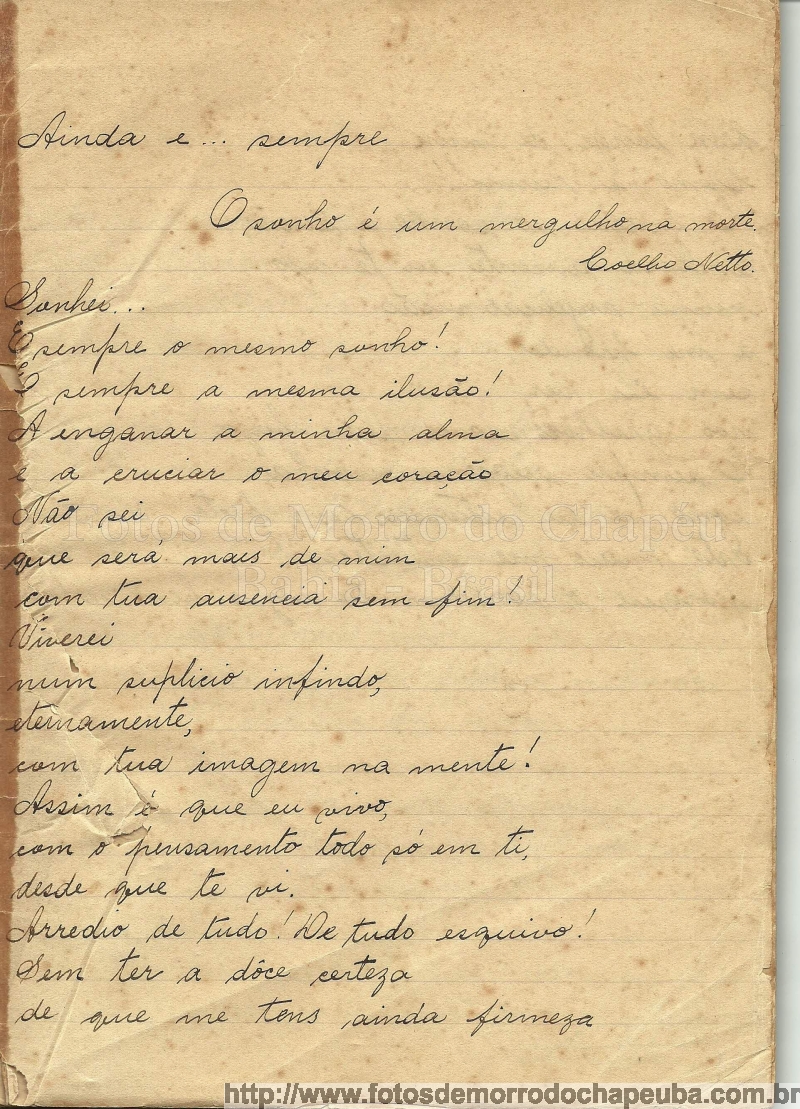 Ainda e... sempre
O sonho é um mergulho na morte.
Coelho Netto.
Sonhei...
E sempre o mesmo sonho!
E sempre a mesma ilusão!
A enganar a minha alma
e a cruciar o meu coração
Não sei
que será mais de mim
com tua ausencia sem fim!
Viverei
num suplicio infindo,
eternamente,
com tua imagem na mente!
Assim é que eu vivo,
com o pensamento todo só em ti,
desde que te vi.
Arredio de tudo! De tudo esquivo!
Sem ter a dôce certeza
de que me tens ainda firmeza
Fotos de Morro do Chapéu
Bahia - Brasil
http://www.fotosdemorrodochapeuba.com.br